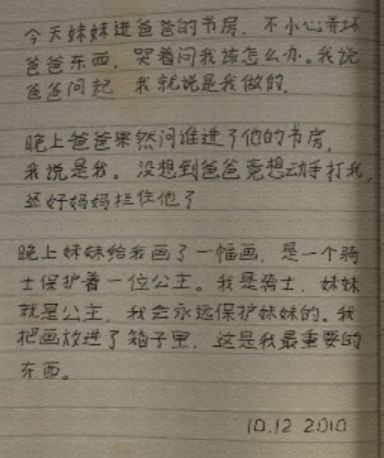 今天妹妹进爸爸的书房，不小心弄坏
爸爸东西，哭着问我该怎么办。我说
爸爸问起，我就说是我做的.
晚上爸爸果然问谁进了他的书房，
我说是我。没想到爸爸竟想动手打我，
还好妈妈拦住他了
晚上妹妹给我画了一幅画，是一个骑
士保护着一位公主。我是骑士，妹妹
就是公主，我会永远保护妹妹的。我
把画放进了箱子里，这是我最重要的
东西。
10.12 2010